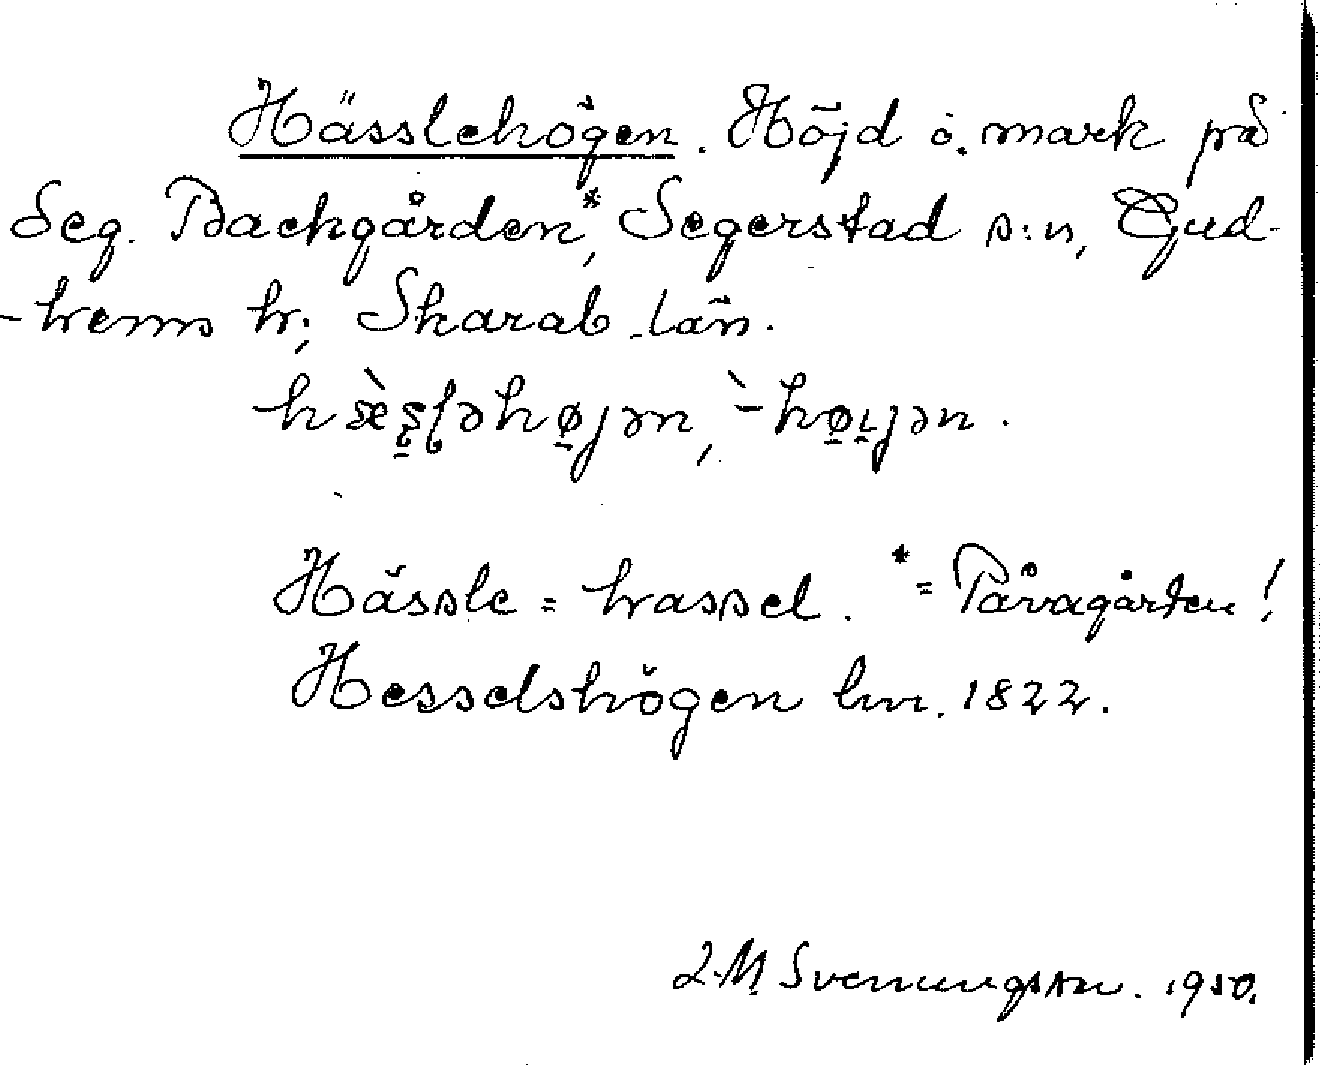 Hässlehögen. Höjd o. mark på
Seg. Backgården*, Segerstad s:n, Gud-
-hems hr; Skarab. län.
hæ̀ʂḷəhø̠jən, ̀-hø̠ı̠jən.
Hässle = hassel. * = Påvagården!
Hesselshögen lm. 1822.
L.M. Svenungsson. 1950.